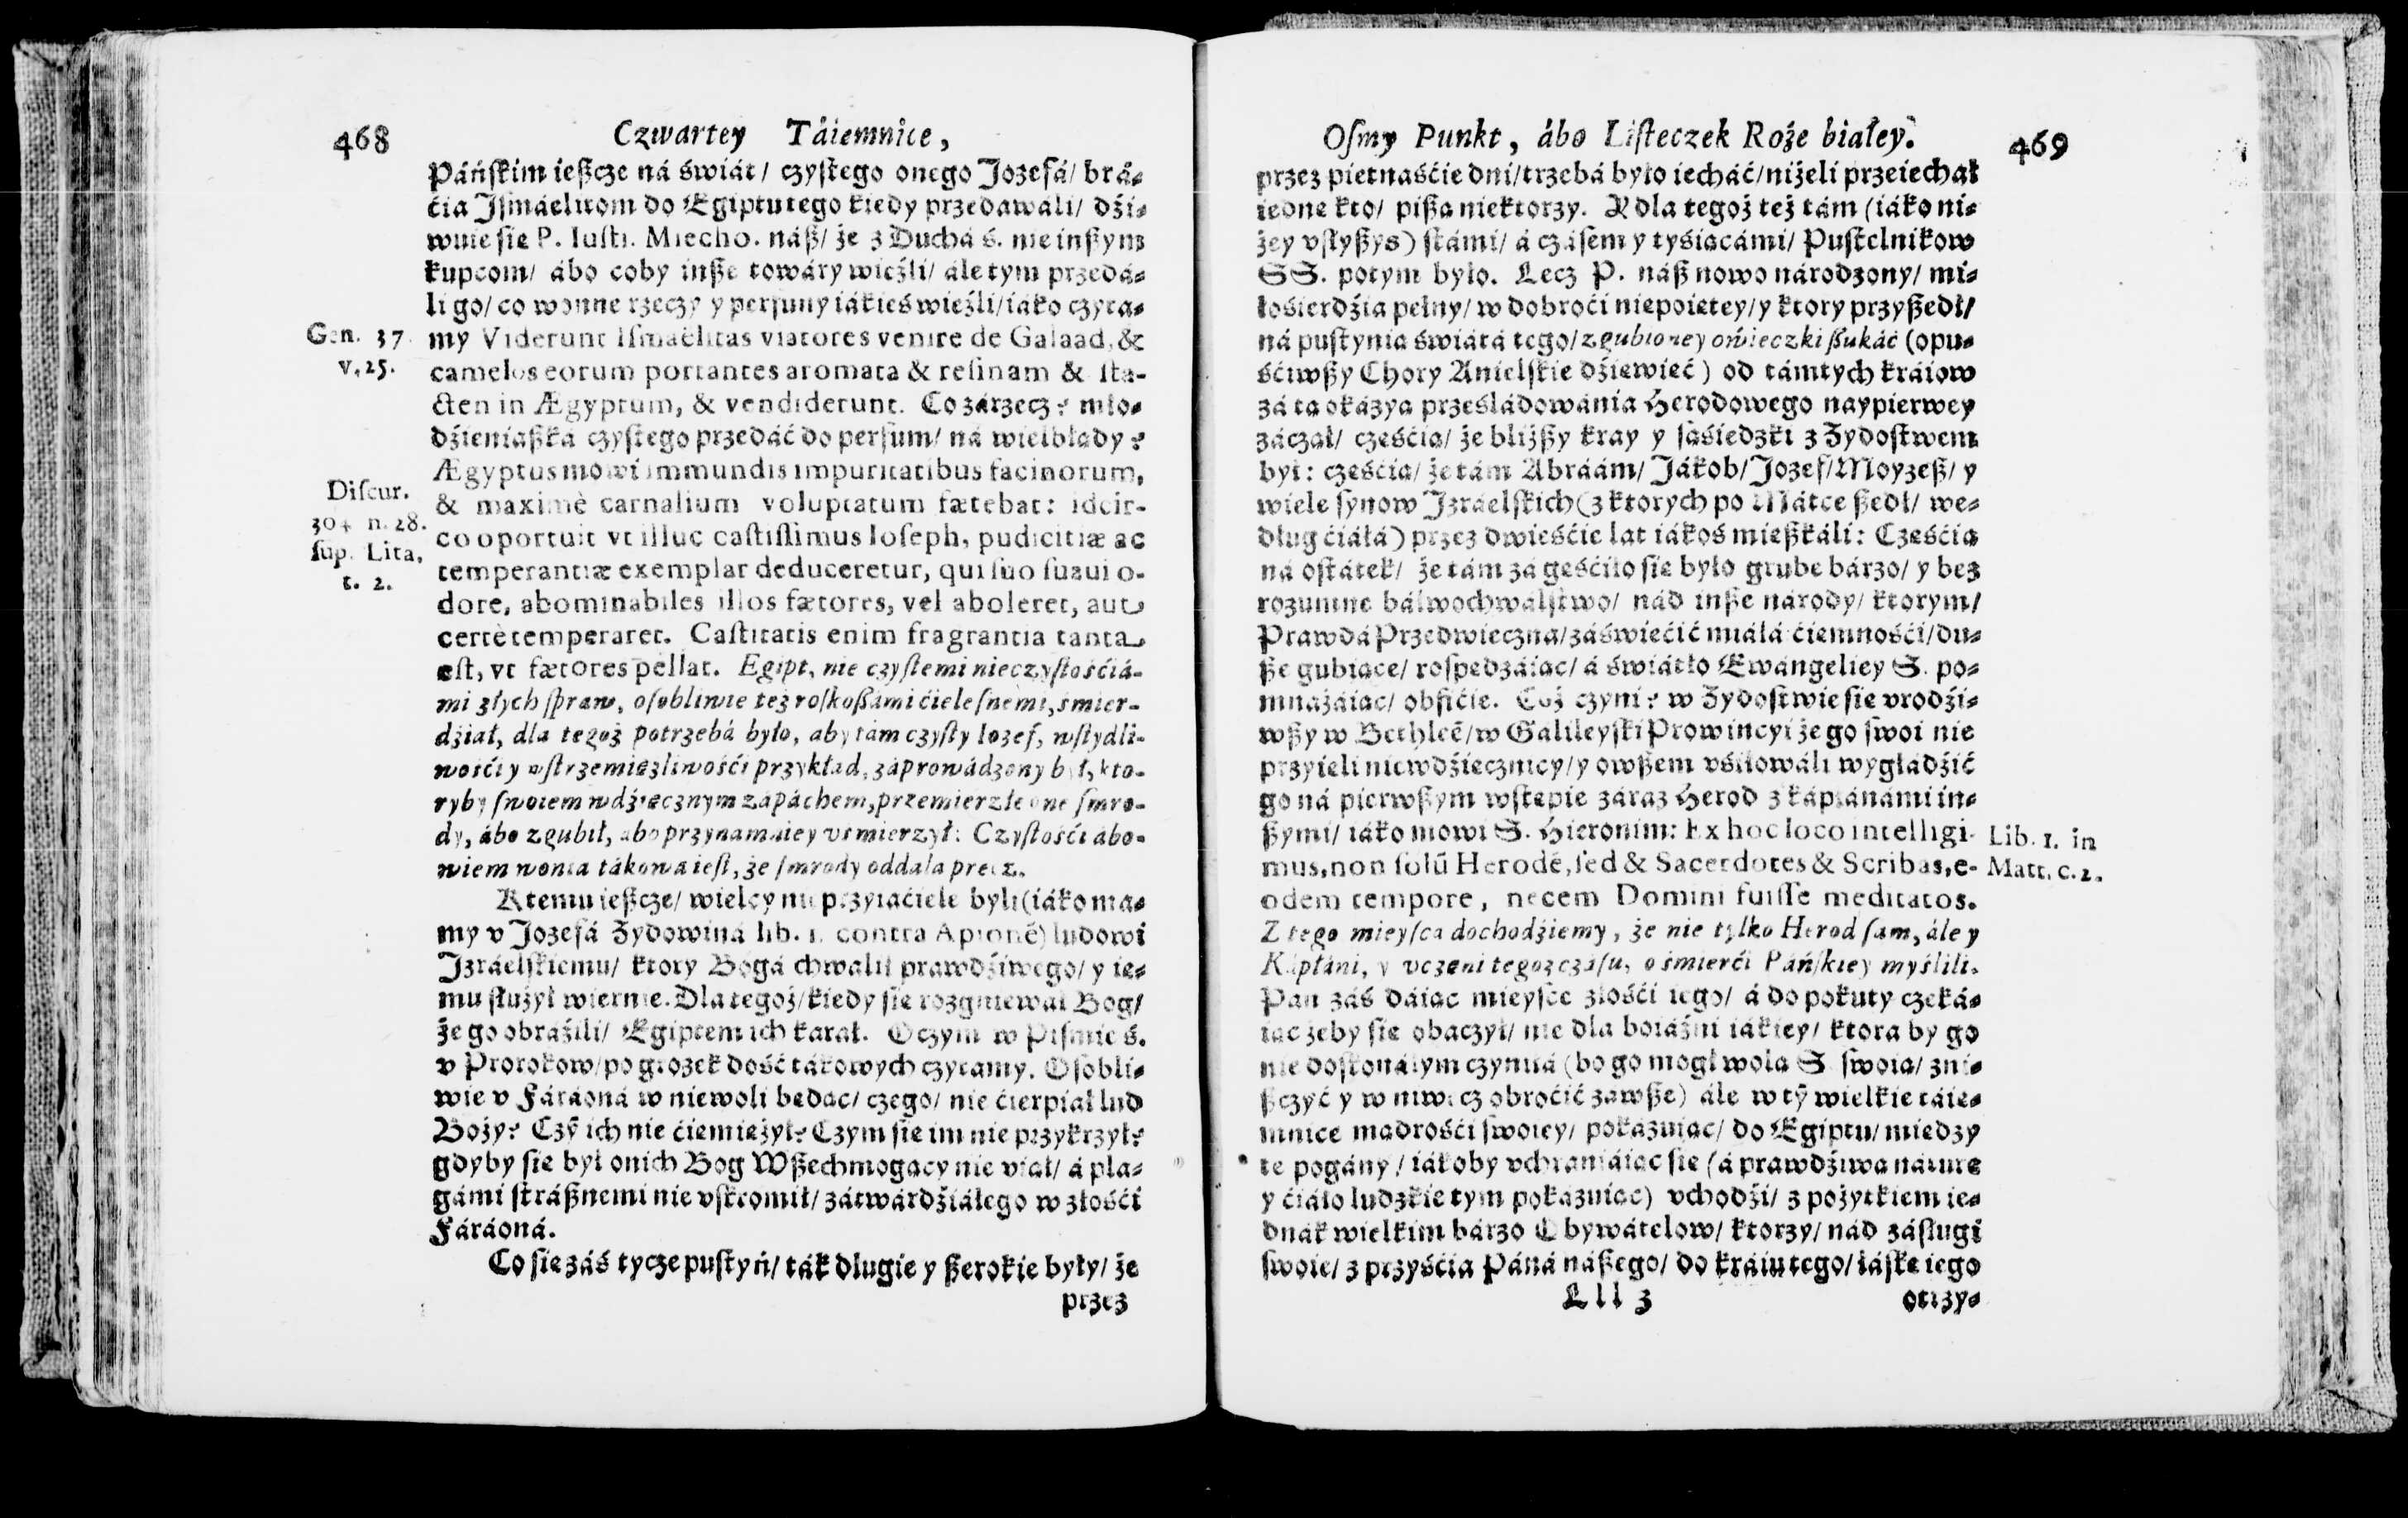 468
Czwartey Táiemnice,
Páńſkim ieſzcze ná świát/ czyſtego onego Jozefá/ brá-
ćia Jſmáelitom do Egiptu tego kiedy przedawáli/ dźi-
wuie ſie P. Iuſti. Miecho. náſz/ że z Duchá ś. nie inſzym
kupcom/ ábo coby inſze towáry wieźli/ ále tym przedá-
li go/ co wonne rzeczy y perfumy iákieś wieźli/ iáko czyta-
Gen. 37.
v. 25.
my Viderunt Iſmaëlitas viatores venire de Galaad, &
camelos eorum portantes aromata & reſinam & ſta-
cten in Ægyptum, & vendiderunt. Co zárzecz? mło-
dźieniaſzká czyſtego przedáć do perfum/ ná wielbłady?
Ægyptus mowi immundis impuritatibus facinorum,
Diſcur.
304 n. 28.
ſup. Lita,
t. 2.
& maximè carnalium voluptatum fætebat: idcir-
co oportuit vt illuc caſtiſſimus Ioſeph, pudicitiæ ac
temperantiæ exemplar deduceretur, qui ſuo ſuaui o-
dore, abominabiles illos fætores, vel aboleret, aut
certè temperaret. Caſtitatis enim fragrantia tanta
eſt, vt fætores pellat. Egipt, nie czyſtemi nieczyſtośćiá-
mi złych ſpraw, oſobliwie też roſkoſzámi ćieleſnemi, śmier-
dźiał, dla tegoż potrzebá było, aby tám czyſty Iozef, wſtydli-
wośći y wſtrzemięźliwośći przykład, záprowádzony był, kto-
ryby ſwoiem wdźięcznym zápáchem, przemierzłe one ſmro-
dy, ábo zgubił, abo przynamniey vśmierzył: Czyſtośći ábo-
wiem wonia tákowa ieſt, że ſmrody oddala precz.
K temu ieſzcze/ wielcy nie przyiaćiele byli (iáko ma-
my v Jozefá Żydowiná lib. 1. contra Apionē) ludowi
Jzráelſkiemu/ ktory Bogá chwalił prawdźiwego/ y ie-
mu ſłużył wiernie. Dla tegoż/ kiedy ſie rozgniewał Bog/
że go obráźili/ Egiptem ich karał. O czym w Piſmie ś.
v Prorokow/ po grozek dość tákowych czytamy. Oſobli-
wie v Fáráoná w niewoli bedac/ czego/ nie ćierpiał lud
Boży? Czȳ ich nie ćiemieżył? Czym ſie im nie przykrzył?
gdyby ſie był o nich Bog Wſzechmogacy nie viał/ á pla-
gámi ſtráſznemi nie vſkromił/ zátwárdźiáłego w złośći
Fáráoná.
Co ſie záś tycze puſtyń/ ták długie y ſzerokie były/ że
przez
Oſmy Punkt, ábo Liſteczek Roże białey.
469
przez pietnaśćie dni/ trzebá było iecháć/ niżeli przeiechał
iedne kto/ piſza niektorzy. A dla tegoż też tám (iáko ni-
żey vſłyſzyſz) ſtámi/ á czáſem y tyśiacámi/ Puſtelnikow
SS. potym było. Lecz P. náſz nowo národzony/ mi-
łośierdźia pełny/ w dobroći niepoietey/ y ktory przyſzedł/
ná puſtynia świátá tego/ zgubioney owieczki ſzukáć (opu-
śćiwſzy Chory Anielſkie dźiewieć) od támtych kráiow
zá ta okázya prześládowánia Herodowego naypierwey
záczał/ cześćia/ że bliżſzy kray y ſáśiedzki z Żydoſtwem
był: cześćia/ że tám Abráám/ Jákob/ Jozef/ Moyzeſz/ y
wiele ſynow Jzráelſkich (z ktorych po Mátce ſzedł/ we-
dług ćiáłá) przez dwieśćie lat iákoś mieſzkáli: Cześćia
ná oſtátek/ że tám zá geśćiło ſie było grube bárzo/ y bez
rozumne báłwochwálſtwo/ nád inſze národy/ ktorym/
Prawdá Przedwieczna/ záświećić miálá ćiemnośći/ du-
ſze gubiace/ roſpedzáiac/ á świátło Ewángeliey S. po-
mnażáiac/ obfićie. Coż czyni? w Żydoſtwie ſie vrodźi-
wſzy w Bethleē/ w Galileyſki Prowincyi że go ſwoi nie
przyieli niewdźiecznicy/ y owſzem vśiłowáli wygładźić
go ná pierwſzym wſtepie záraz Herod z kápłánámi in-
ſzymi/ iáko mowi S. Hieronim: Ex hoc loco intelligi-
Lib. 1. in
Matt. c. 2.
mus, non ſolū Herodē, ſed & Sacerdotes & Scribas, e-
odem tempore, necem Domini fuiſſe meditatos.
Z tego mieyſca dochodźiemy, że nie tylko Herod ſam, ále y
Kápłáni, y vczeni tegoż czáſu, o śmierći Páńſkiey myślili.
Pan záś dáiac mieyſce złośći iego/ á do pokuty czeká-
iac żeby ſie obaczył/ nie dla boiáźni iákiey/ ktora by go
nie doſkonáłym czyniłá (bo go mogł wola S. ſwoia/ zni-
ſzczyć y w niwecz obroćić záwſze) ále w tȳ wielkie táie-
mnice madrośći ſwoiey/ pokázuiac/ do Egiptu/ miedzy
te pogány/ iákoby vchraniáiac ſie (á prawdźiwa náture
y ćiáło ludzkie tym pokázuiac) vchodźi/ z pożytkiem ie-
dnák wielkim bárzo Obywátelow/ ktorzy/ nád záſługi
ſwoie/ z przyśćia Páná náſzego/ do kráiu tego/ łáſke iego
Lll 3
otrzy-